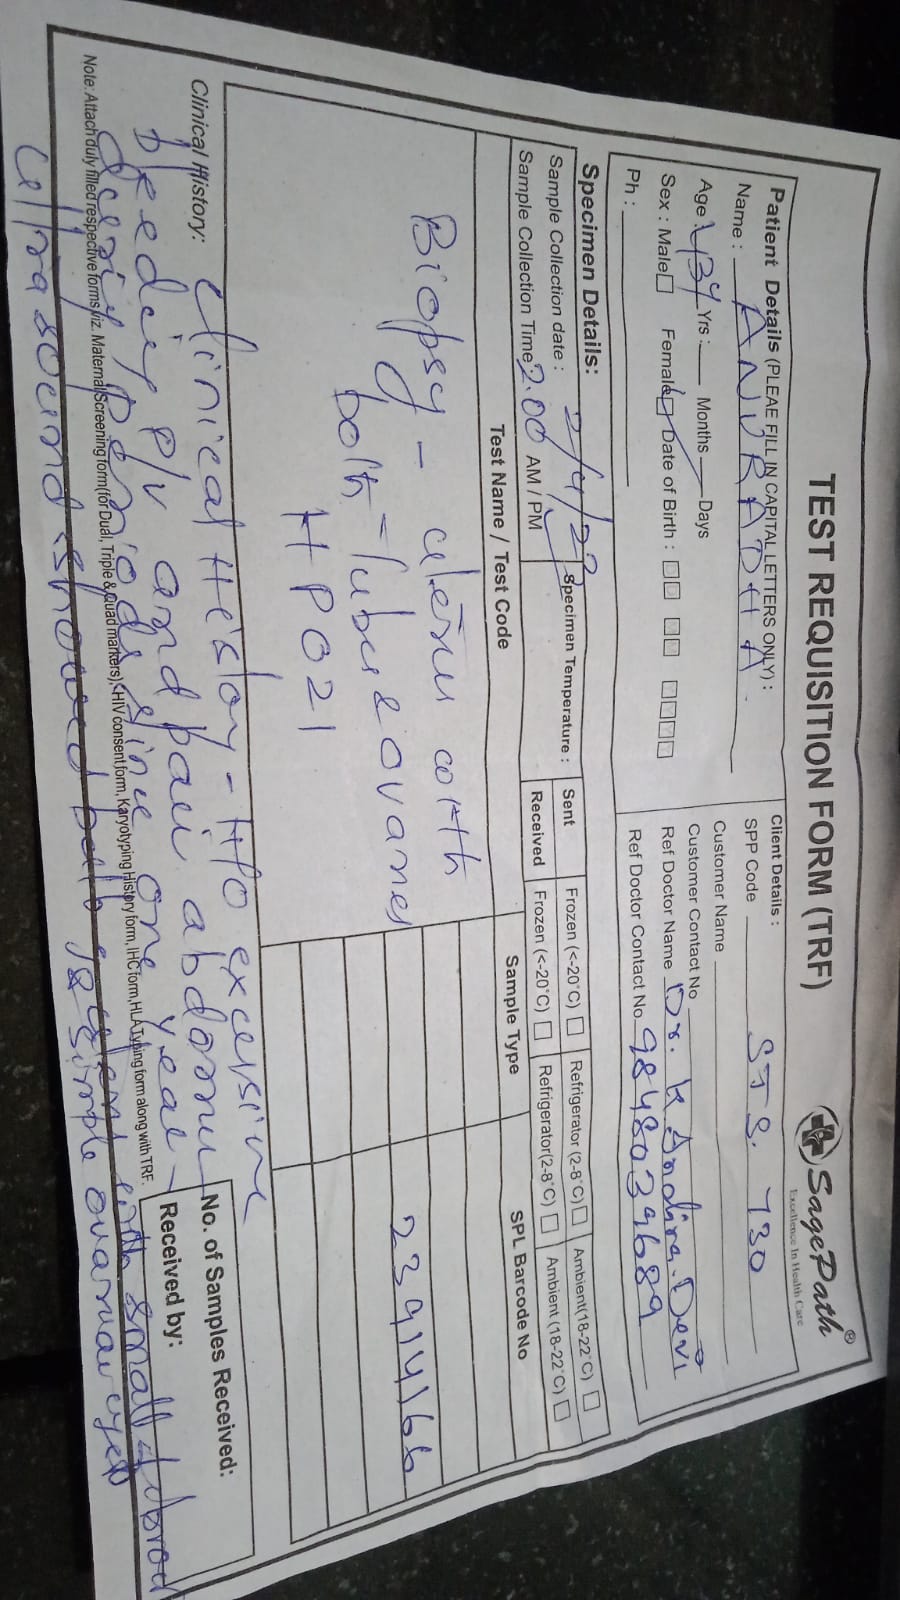 TEST REQUISITION FORM (TRF)
SagePath®
Excellence In Health Care
Patient Details (PLEAE FILL IN CAPITAL LETTERS ONLY) :
Name : ANURADHA
Age : 43y Yrs : Months Days
Sex : Male Female Date of Birth :
Ph :
Client Details :
SPP Code STS. 730
Customer Name
Customer Contact No
Ref Doctor Name Dr. K Andira Devi
Ref Doctor Contact No 9848039689
Specimen Details:
Sample Collection date : 2/4/23
Sample Collection Time 2.00 AM / PM
Specimen Temperature :
Sent Frozen (<-20°C) Refrigerator (2-8°C) Ambient(18-22°C)
Received Frozen (<-20°C) Refrigerator(2-8°C) Ambient (18-22°C)
Test Name / Test Code Sample Type SPL Barcode No
Biopsy - uterus with
both Tubes & ovaries 23914166
HP021
Clinical History: Clinical History - H/o excessive
bleeding P/v and pain abdomen
during periods since one year
No. of Samples Received:
Received by:
Note: Attach duly filled respective forms viz. Maternal Screening form (for Dual, Triple & Quad markers), HIV consent form, Karyotyping History form, IHC form, HLA Typing form along with TRF.
Ultrasound showed with small
simple ovarian cyst